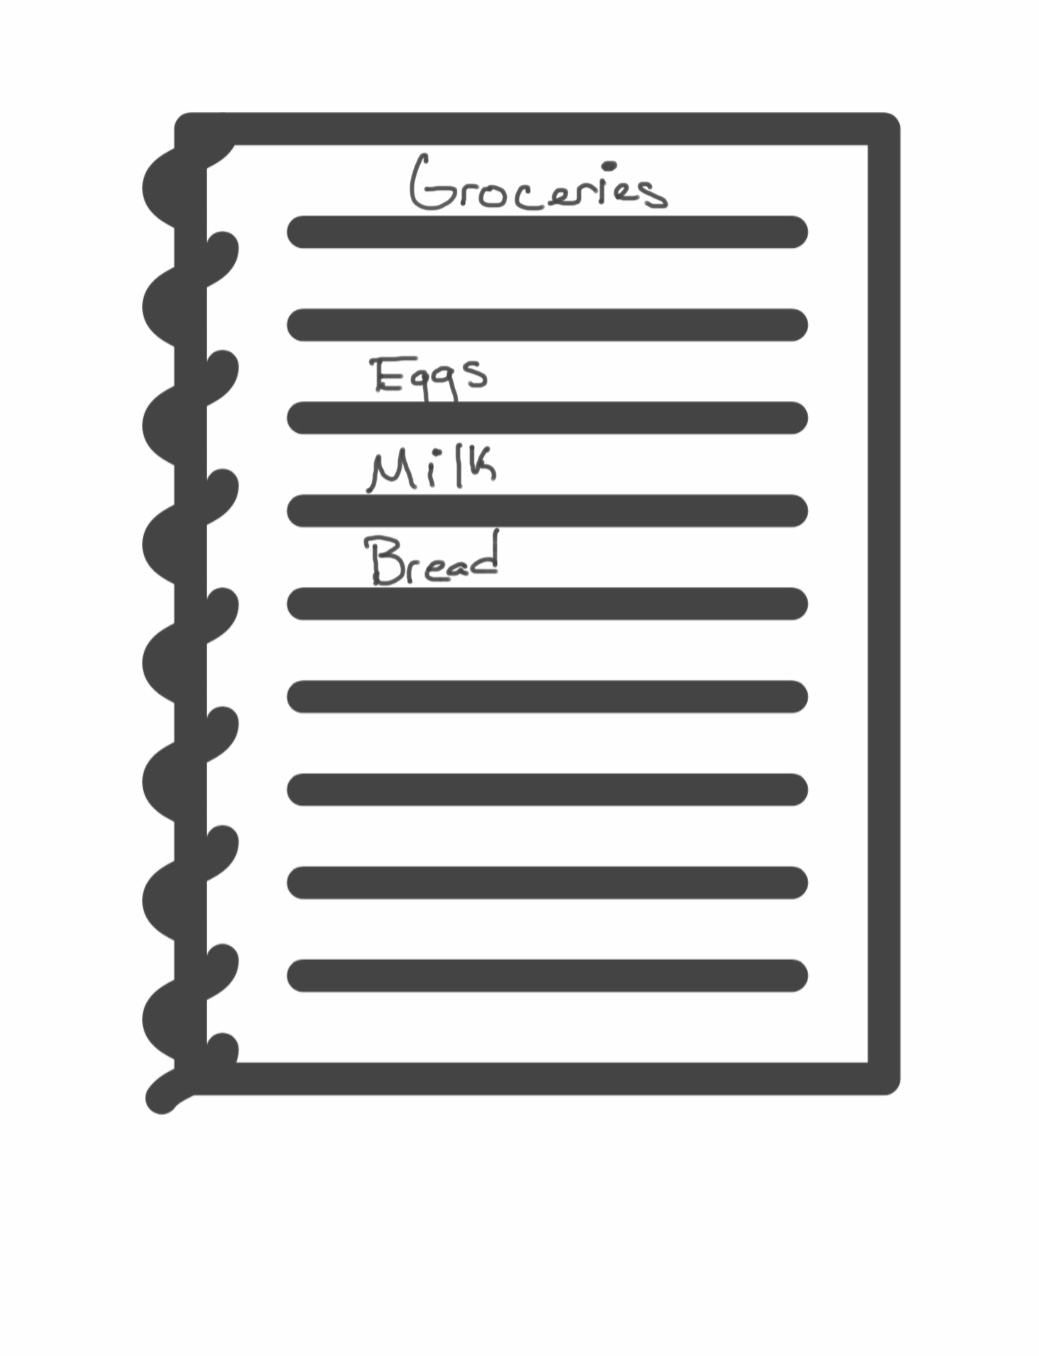 Groceries
Eggs
Milk
Bread